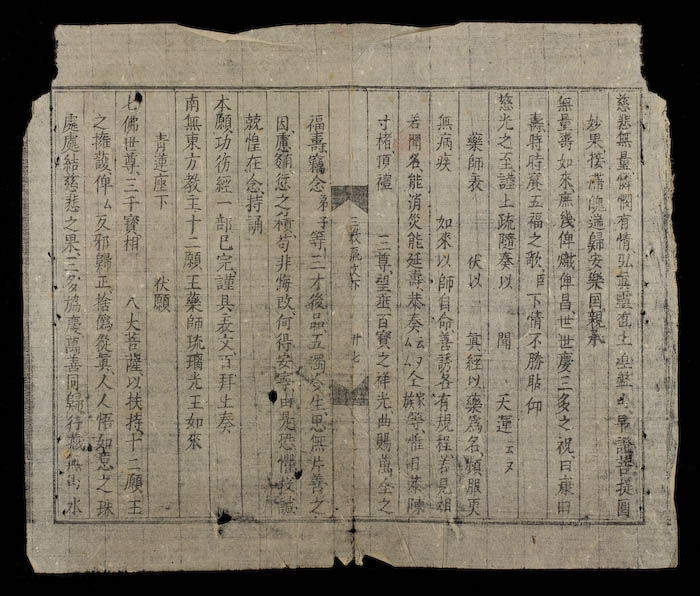 慈悲無量憐憫有情弘眞靈直上早證菩提圓
妙果接歸安樂囯親承
無量善如來庶幾俾熾俾昌世世慶三多之祝曰康曰
壽時時賡五福之歌臣下情不勝貼仰
慈光之至謹上疏隨奏以 聞 天運 云又
藥師表 伏以 眞經以藥爲名頻服更
無病疾 如來以師自命善誘各有規程若見相
若聞名能消災能延壽恭奏云又仝家族等惟日菲陳
寸楮頂禮 三尊望垂百寶之祥光曲賜萬全之
三教 文下 卅七
福壽竊念弟子等三才後品五濁生思無片善之
因慮愆之積苟非悔改何得安寧由是恐懼投誠
兢惶在念持誦
本願功彷經一部已完謹具表文百拜上奏
南無東方教主十二願王藥師琉璃光王如來
青蓮座下 伏願
七佛世尊三千寶相 八大菩薩以扶持十二願王
之擁護俾厶反邪歸正捨僞從眞人人悟如意之珠
處處結慈悲之果三多協慶萬善同歸行藏 山水